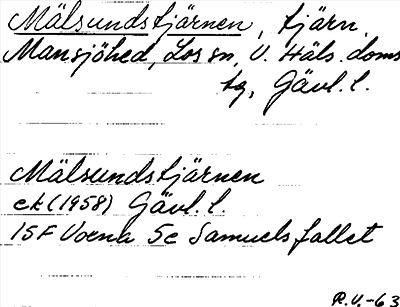 Mälsundstjärnen, tjärn,
Mansjöhed, Los sn, V. Häls. doms
tg, Gävl. l.
Mälsundstjärnen
ek (1958) Gävl. l.
15F Voxna 5c Samuelsfallet
R.V.-63